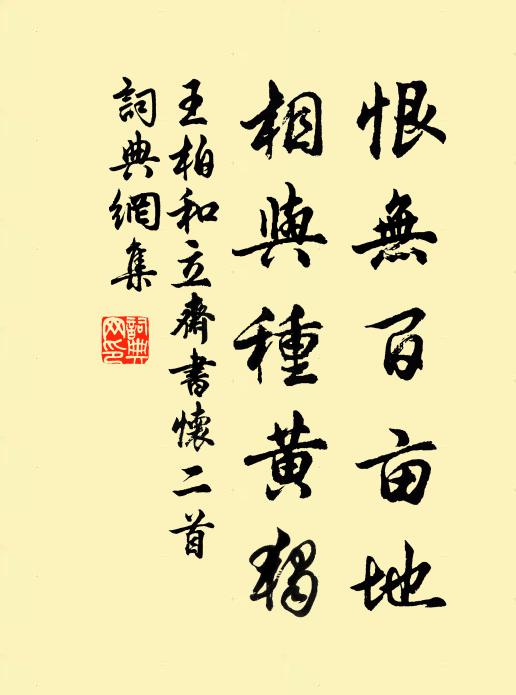 恨無百亩地
相與種黄獨
王柏和立齋書懷二首
詞典網集
詞典
网印